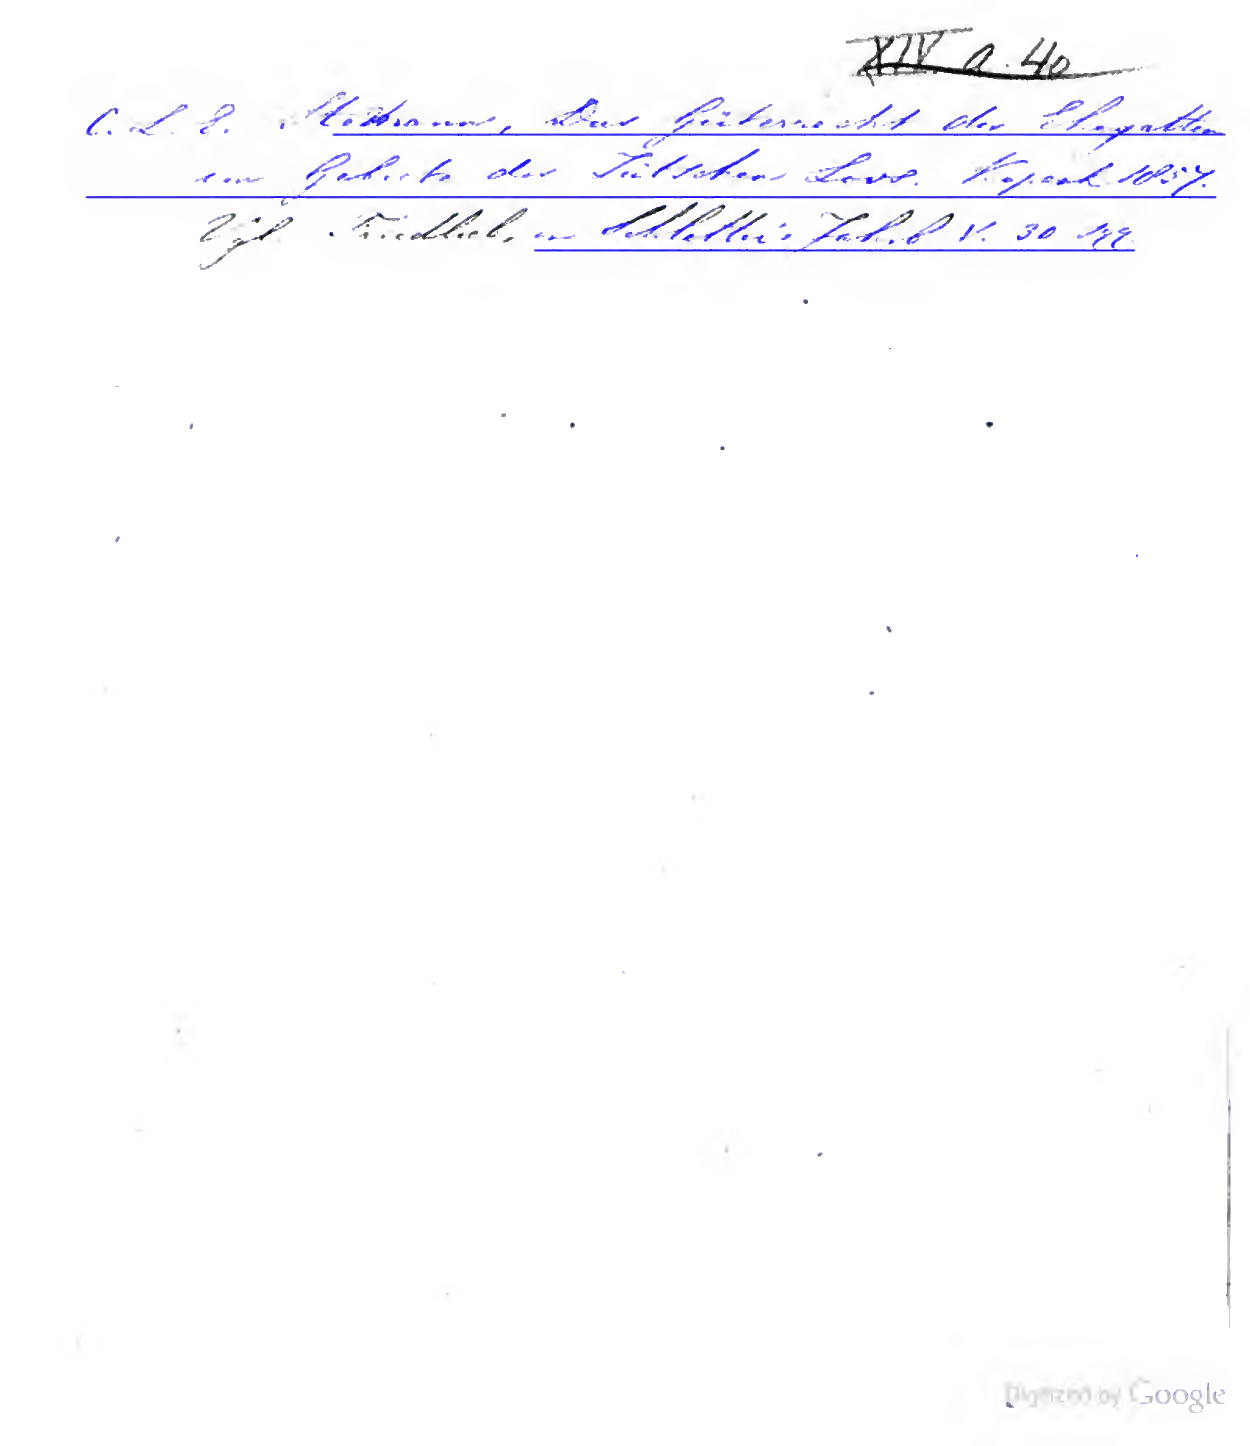 XIV a. 40
C. L. E. Stemann, Das Güterrecht der Ehegatten
im Gebiete des Jütschen Lovs. Kopenh. 1857.
Vgl. Friedlieb, in Schletter's Jahrb. V. 30
Digitized by Google